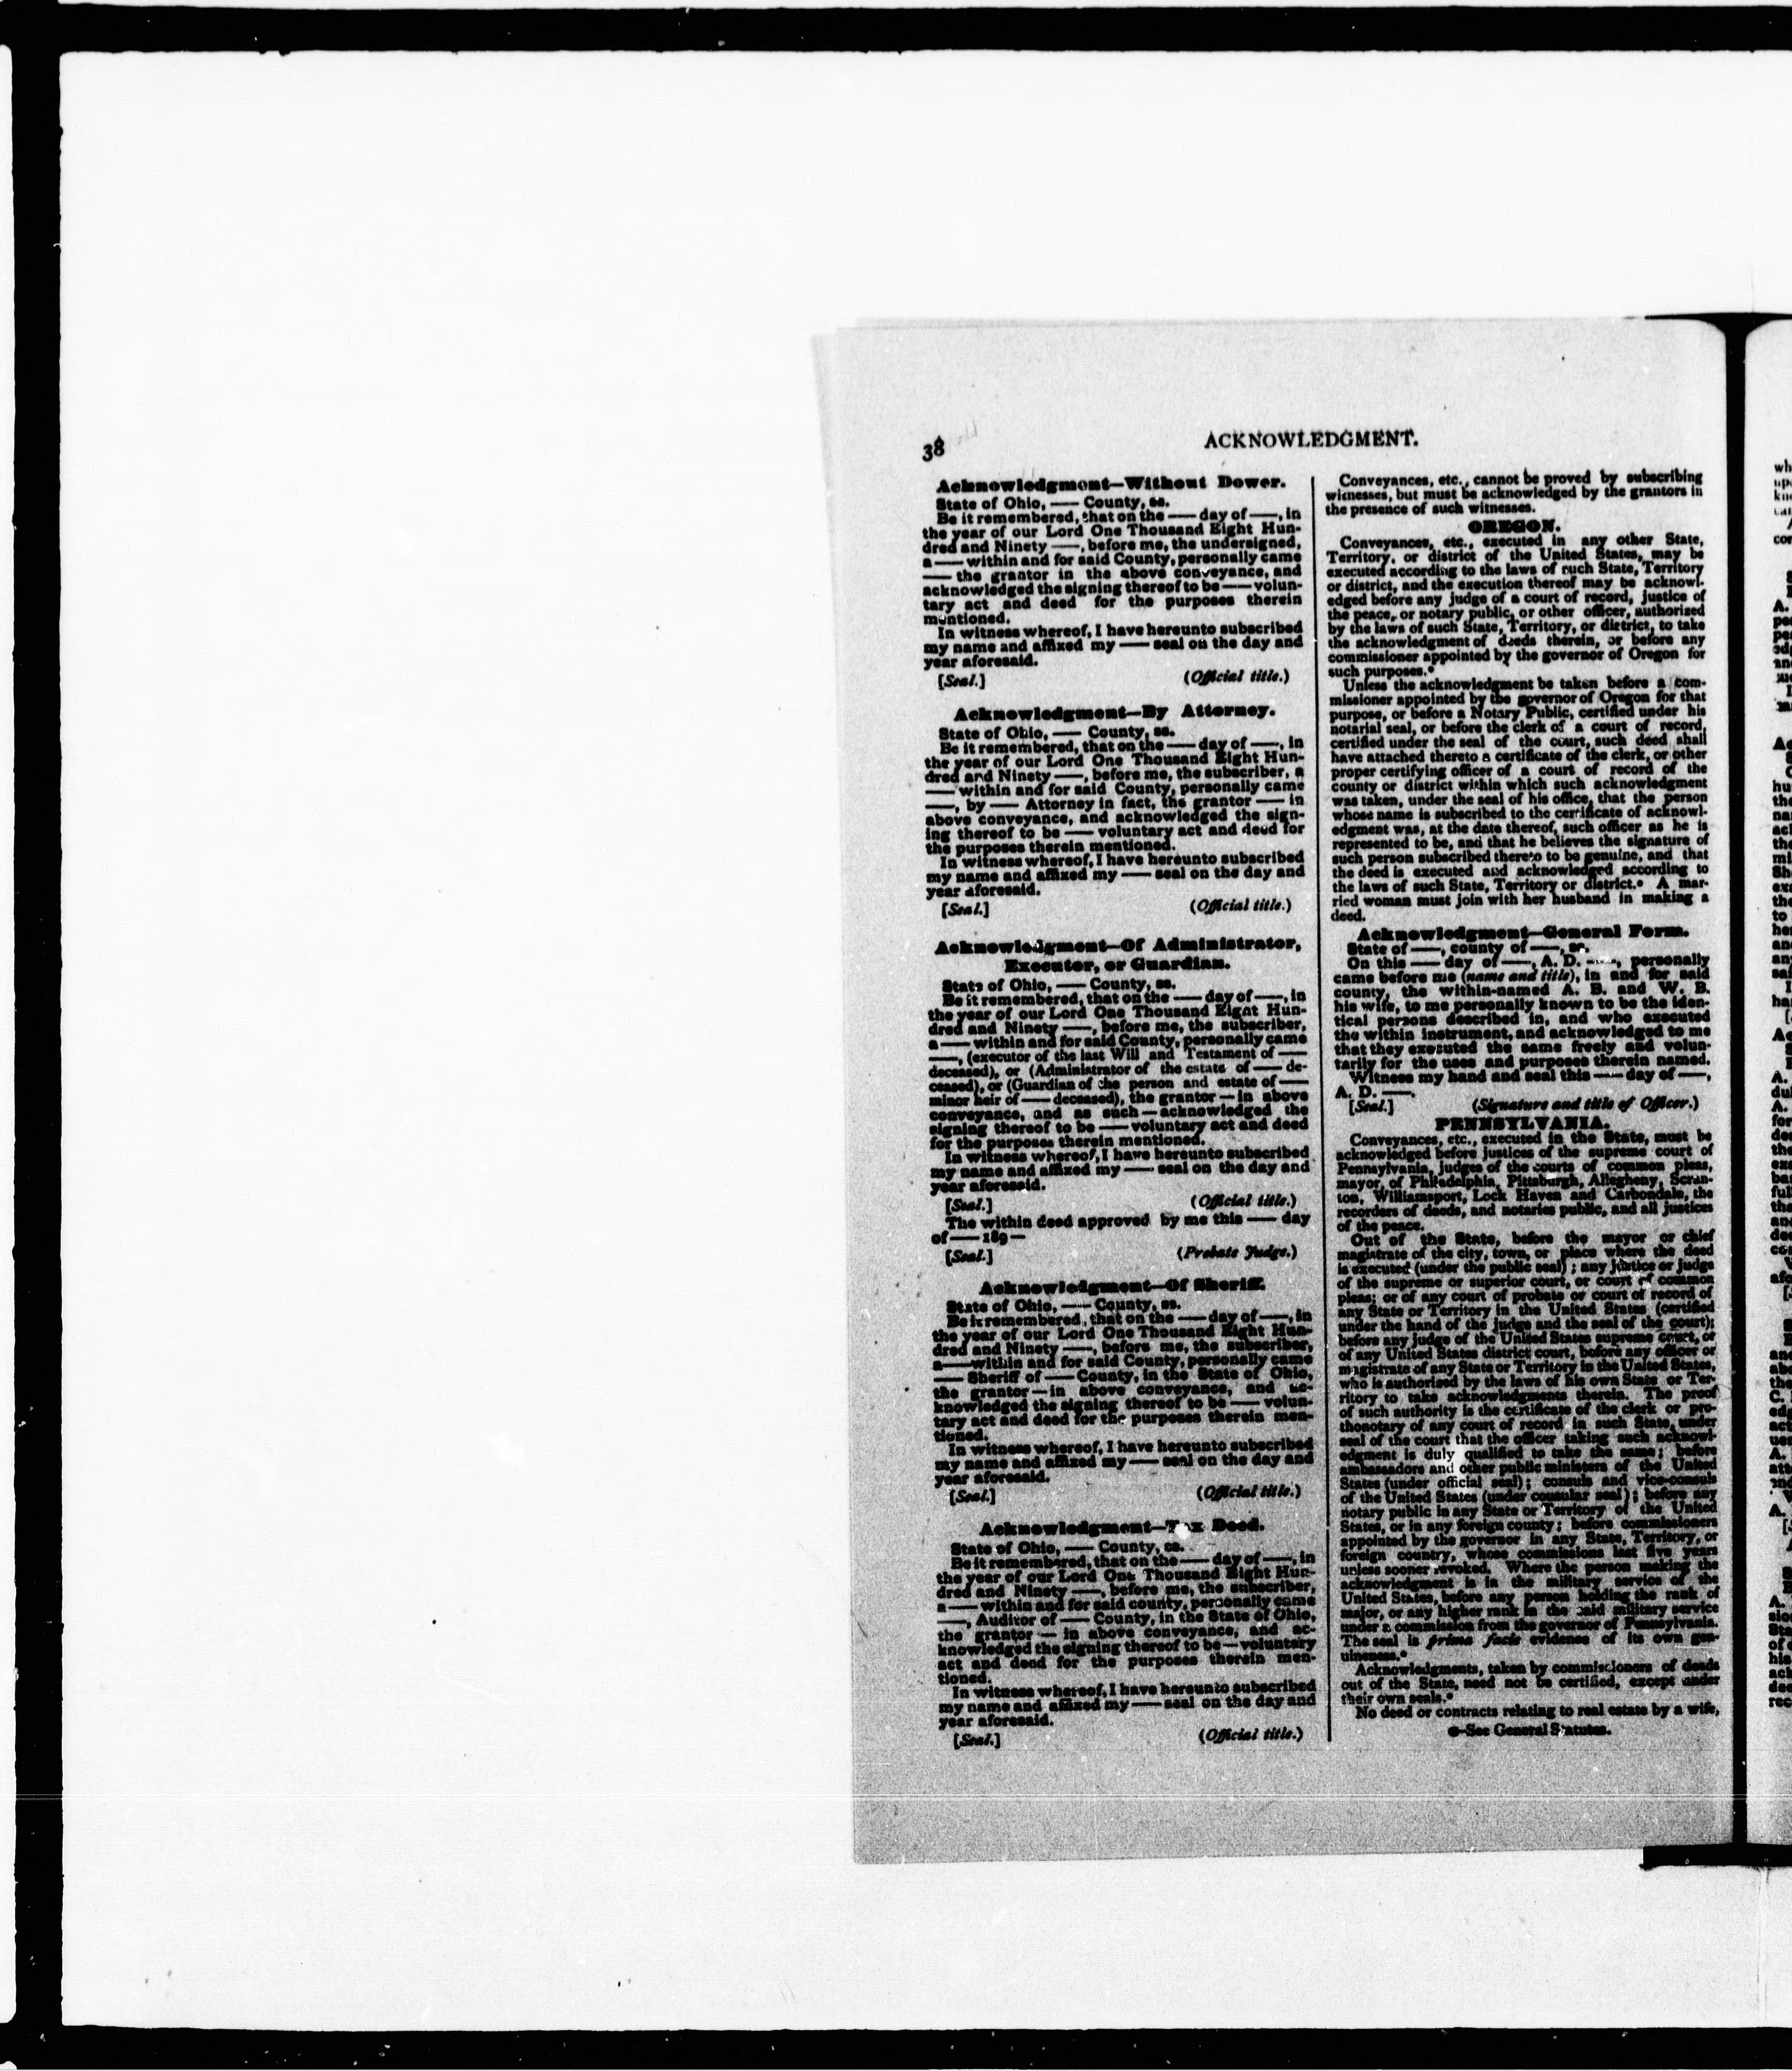 38
ACKNOWLEDGMENT.
Acknowledgment—Without Dower.
State of Ohio, —— County, ss.
Be it remembered, that on the —— day of ——, in
the year of our Lord One Thousand Eight Hun-
dred and Ninety ——, before me, the undersigned,
a —— within and for said County, personally came
—— the grantor in the above conveyance, and
acknowledged the signing thereof to be —— volun-
tary act and deed for the purposes therein
mentioned.
In witness whereof, I have hereunto subscribed
my name and affixed my —— seal on the day and
year aforesaid.
[Seal.] (Official title.)
Acknowledgment—By Attorney.
State of Ohio, —— County, ss.
Be it remembered, that on the —— day of ——, in
the year of our Lord One Thousand Eight Hun-
dred and Ninety ——, before me, the subscriber, a
—— within and for said County, personally came
——, by —— Attorney in fact, the grantor —— in
above conveyance, and acknowledged the sign-
ing thereof to be —— voluntary act and deed for
the purposes therein mentioned.
In witness whereof, I have hereunto subscribed
my name and affixed my —— seal on the day and
year aforesaid.
[Seal.] (Official title.)
Acknowledgment—Of Administrator,
Executor, or Guardian.
State of Ohio, —— County, ss.
Be it remembered, that on the —— day of ——, in
the year of our Lord One Thousand Eight Hun-
dred and Ninety ——, before me, the subscriber,
a —— within and for said County, personally came
——, (executor of the last Will and Testament of ——
deceased), or (Administrator of the estate of —— de-
ceased), or (Guardian of the person and estate of ——
minor heir of —— deceased), the grantor — in above
conveyance, and as such — acknowledged the
signing thereof to be —— voluntary act and deed
for the purposes therein mentioned.
In witness whereof, I have hereunto subscribed
my name and affixed my —— seal on the day and
year aforesaid.
[Seal.] (Official title.)
The within deed approved by me this —— day
of —— 189—
[Seal.] (Probate Judge.)
Acknowledgment—Of Sheriff.
State of Ohio, —— County, ss.
Be it remembered, that on the —— day of ——, in
the year of our Lord One Thousand Eight Hun-
dred and Ninety ——, before me, the subscriber,
a —— within and for said County, personally came
—— Sheriff of —— County, in the State of Ohio,
the grantor — in above conveyance, and ac-
knowledged the signing thereof to be —— volun-
tary act and deed for the purposes therein men-
tioned.
In witness whereof, I have hereunto subscribed
my name and affixed my —— seal on the day and
year aforesaid.
[Seal.] (Official title.)
Acknowledgment—Tax Deed.
State of Ohio, —— County, ss.
Be it remembered, that on the —— day of ——, in
the year of our Lord One Thousand Eight Hun-
dred and Ninety ——, before me, the subscriber,
a —— within and for said county, personally came
——, Auditor of —— County, in the State of Ohio,
the grantor — in above conveyance, and ac-
knowledged the signing thereof to be — voluntary
act and deed for the purposes therein men-
tioned.
In witness whereof, I have hereunto subscribed
my name and affixed my —— seal on the day and
year aforesaid.
[Seal.] (Official title.)
Conveyances, etc., cannot be proved by subscribing
witnesses, but must be acknowledged by the grantors in
the presence of such witnesses.
OREGON.
Conveyances, etc., executed in any other State,
Territory, or district of the United States, may be
executed according to the laws of such State, Territory
or district, and the execution thereof may be acknowl-
edged before any judge of a court of record, justice of
the peace, or notary public, or other officer, authorized
by the laws of such State, Territory, or district, to take
the acknowledgment of deeds therein, or before any
commissioner appointed by the governor of Oregon for
such purposes.*
Unless the acknowledgment be taken before a com-
missioner appointed by the governor of Oregon for that
purpose, or before a Notary Public, certified under his
notarial seal, or before the clerk of a court of record,
certified under the seal of the court, such deed shall
have attached thereto a certificate of the clerk, or other
proper certifying officer of a court of record of the
county or district within which such acknowledgment
was taken, under the seal of his office, that the person
whose name is subscribed to the certificate of acknowl-
edgment was, at the date thereof, such officer as he is
represented to be, and that he believes the signature of
such person subscribed thereto to be genuine, and that
the deed is executed and acknowledged according to
the laws of such State, Territory or district.* A mar-
ried woman must join with her husband in making a
deed.
Acknowledgment—General Form.
State of ——, county of ——, ss.
On this —— day of ——, A. D. ——, personally
came before me (name and title), in and for said
county, the within-named A. B. and W. B.
his wife, to me personally known to be the iden-
tical persons described in, and who executed
the within instrument, and acknowledged to me
that they executed the same freely and volun-
tarily for the uses and purposes therein named.
Witness my hand and seal this —— day of ——,
A. D. ——.
[Seal.] (Signature and title of Officer.)
PENNSYLVANIA.
Conveyances, etc., executed in the State, must be
acknowledged before justices of the supreme court of
Pennsylvania, judges of the courts of common pleas,
mayor, of Philadelphia, Pittsburgh, Allegheny, Scran-
ton, Williamsport, Lock Haven and Carbondale, the
recorders of deeds, and notaries public, and all justices
of the peace.
Out of the State, before the mayor or chief
magistrate of the city, town, or place where the deed
is executed (under the public seal); any justice or judge
of the supreme or superior court, or court of common
pleas; or of any court of probate or court of record of
any State or Territory in the United States (certified
under the hand of the judge and the seal of the court);
before any judge of the United States supreme court, or
of any United States district court, before any officer or
magistrate of any State or Territory in the United States,
who is authorized by the laws of his own State or Ter-
ritory to take acknowledgments therein. The proof
of such authority is the certificate of the clerk or pro-
thonotary of any court of record in such State, under
seal of the court that the officer taking such acknowl-
edgment is duly qualified to take the same; before
ambassadors and other public ministers of the United
States (under official seal); consuls and vice-consuls
of the United States (under consular seal); before any
notary public in any State or Territory of the United
States, or in any foreign county; before commissioners
appointed by the governor in any State, Territory, or
foreign country, whose commissions last five years
unless sooner revoked. Where the person making the
acknowledgment is in the military service of the
United States, before any person holding the rank of
major, or any higher rank in the said military service
under a commission from the governor of Pennsylvania.
The seal is prima facie evidence of its own gen-
uineness.*
Acknowledgments, taken by commissioners of deeds
out of the State, need not be certified, except under
their own seals.*
No deed or contracts relating to real estate by a wife,
*—See General Statutes.